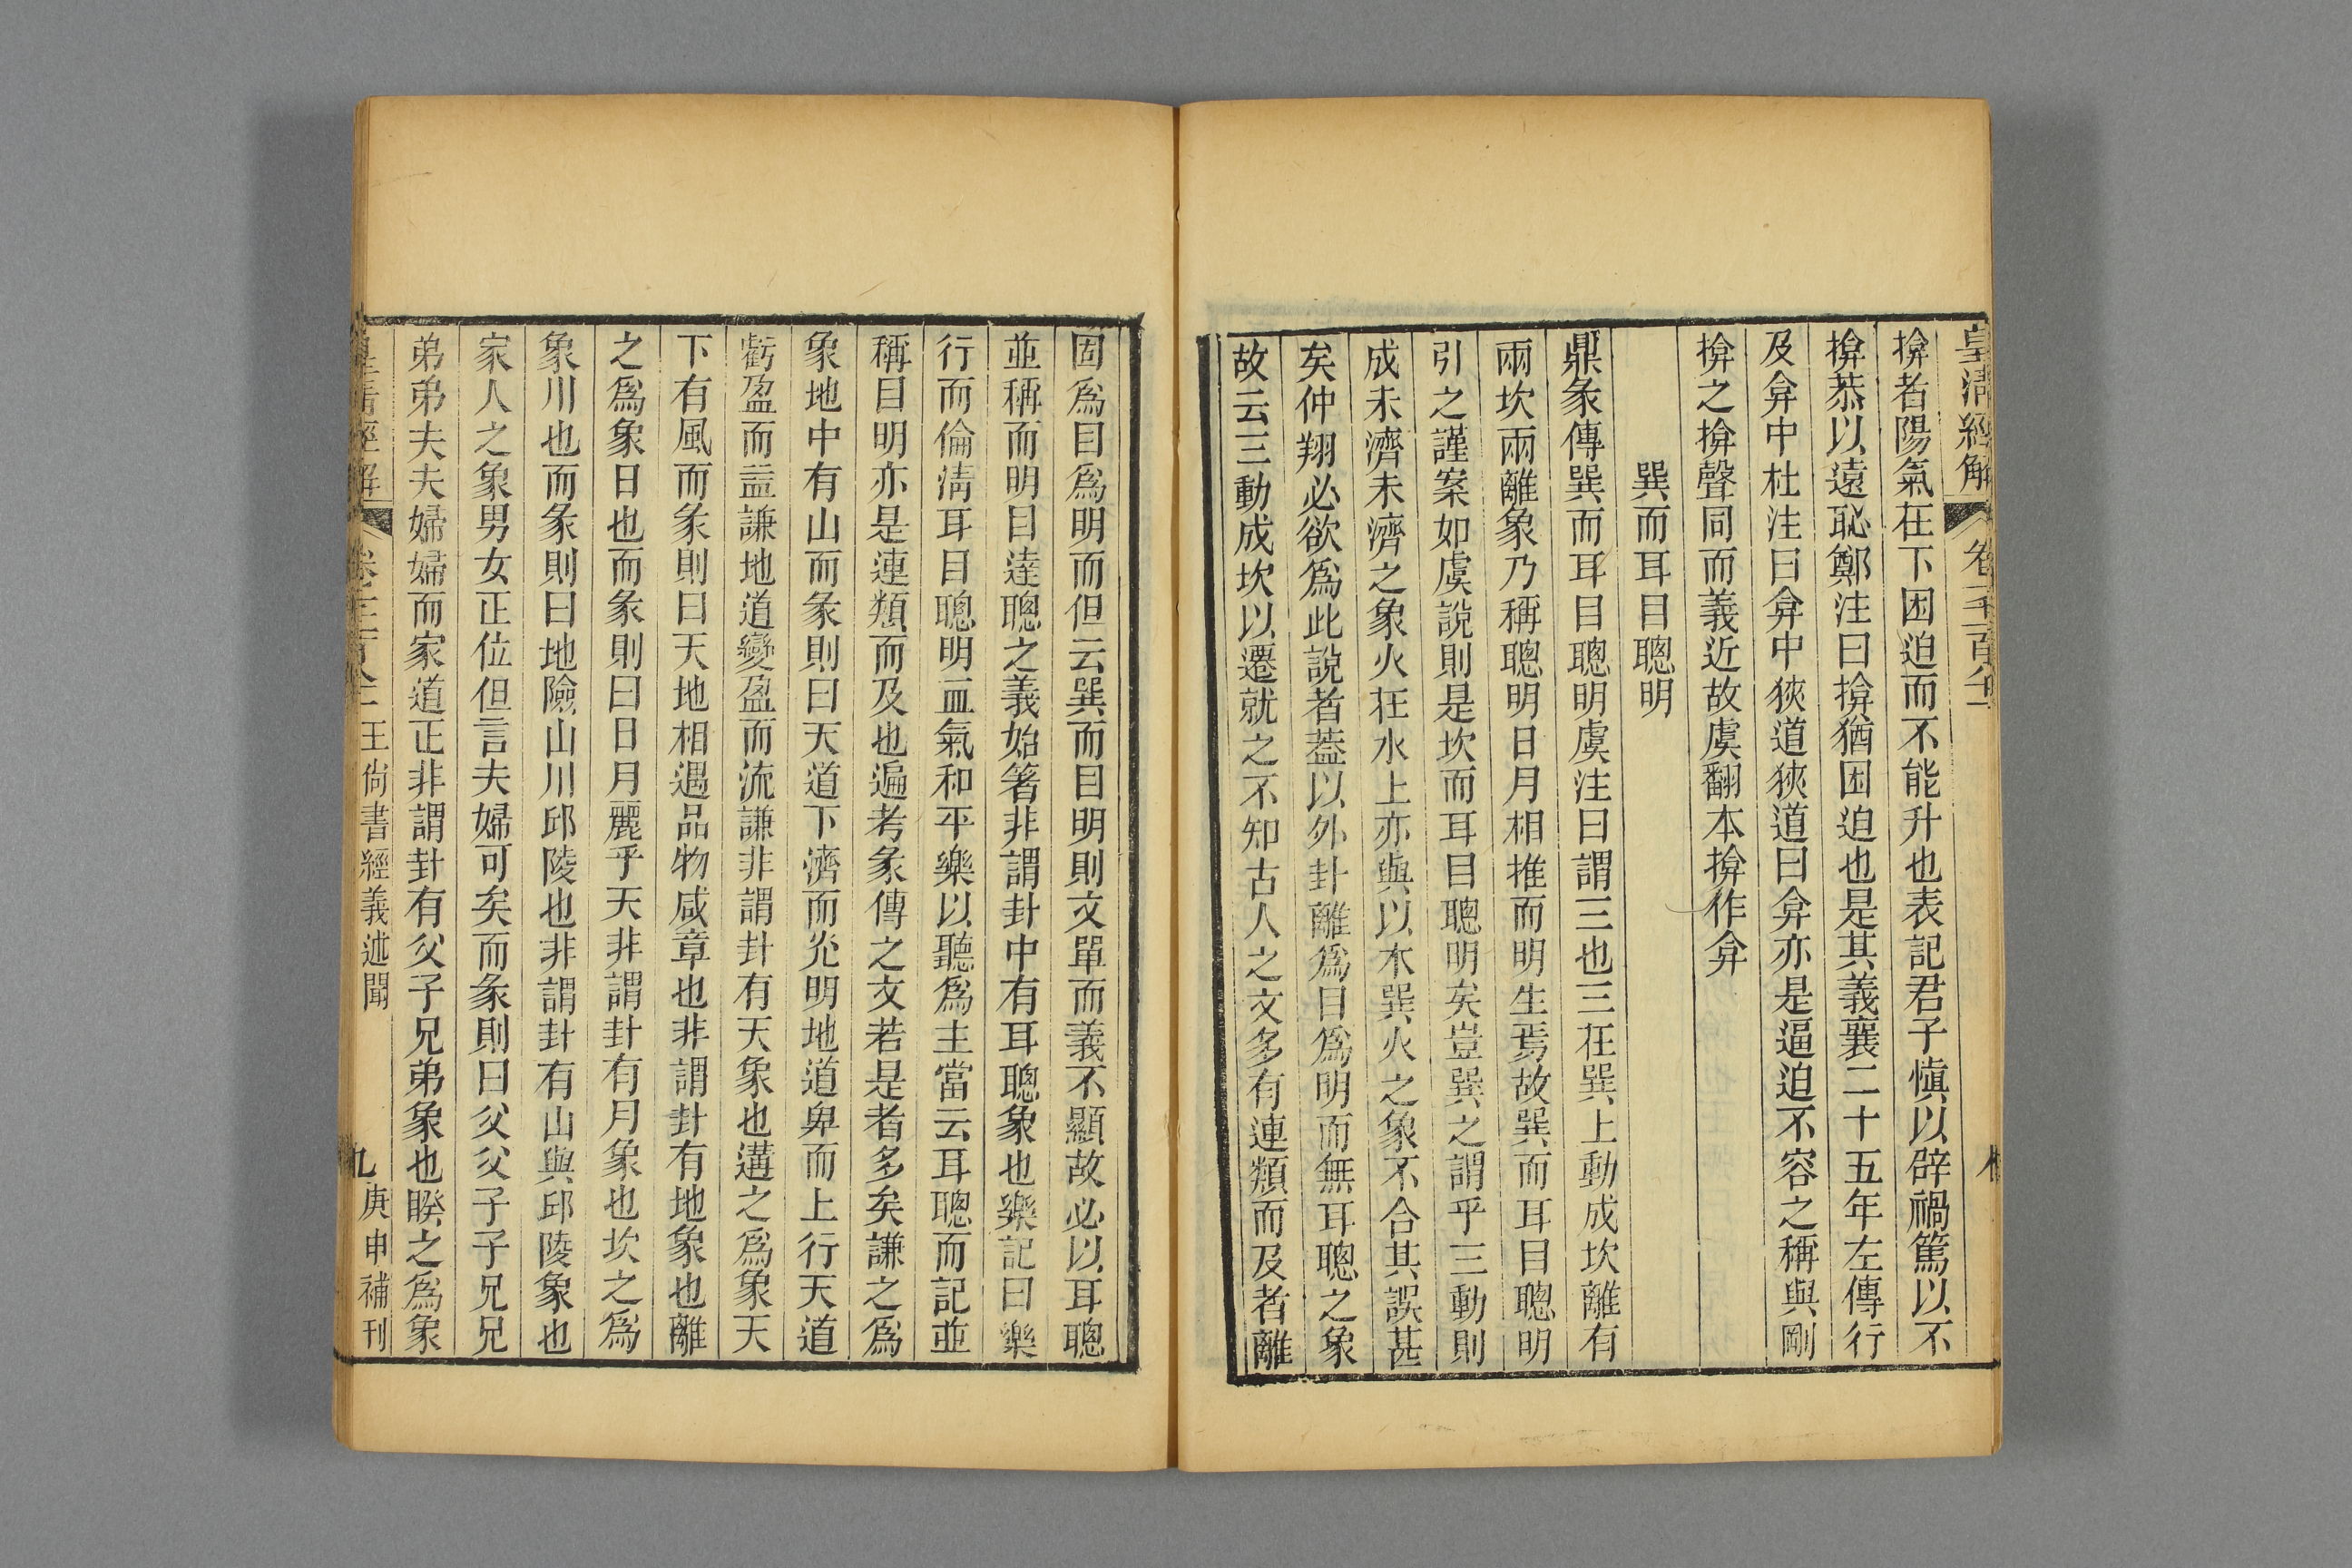 皇清經解 卷千一百八十一
揜者陽氣在下困迫而不能升也表記君子愼以辟禍篤以不
揜恭以遠恥鄭注曰揜猶困迫也是其義襄二十五年左傳行
及弇中杜注曰弇中狹道狹道曰弇亦是逼迫不容之稱與剛
揜之揜聲同而義近故虞翻本揜作弇
巽而耳目聰明
鼎彖傳巽而耳目聰明虞注曰謂三也三在巽上動成坎離有
兩坎兩離象乃稱聰明日月相推而明生焉故巽而耳目聰明
引之謹案如虞說則是坎而耳目聰明矣豈巽之謂乎三動則
成未濟未濟之象火在水上亦與以木巽火之象不合其誤甚
矣仲翔必欲爲此說者葢以外卦離爲目爲明而無耳聰之象
故云三動成坎以遷就之不知古人之文多有連類而及者離
固爲目爲明而但云巽而目明則文單而義不顯故必以耳聰
並稱而明目達聰之義始箸非謂卦中有耳聰象也樂記曰樂
行而倫淸耳目聰明血氣和平樂以聽爲主當云耳聰而記並
稱目明亦是連類而及也遍考彖傳之文若是者多矣謙之爲
象地中有山而彖則曰天道下濟而光明地道卑而上行天道
虧盈而益謙地道變盈而流謙非謂卦有天象也遘之爲象天
下有風而彖則曰天地相遇品物咸章也非謂卦有地象也離
之爲象日也而彖則曰日月麗乎天非謂卦有月象也坎之爲
象川也而彖則曰地險山川邱陵也非謂卦有山與邱陵象也
家人之象男女正位但言夫婦可矣而彖則曰父父子子兄兄
弟弟夫夫婦婦而家道正非謂卦有父子兄弟象也睽之爲象
皇淸經解 王尙書經義述聞 九 庚申補刊